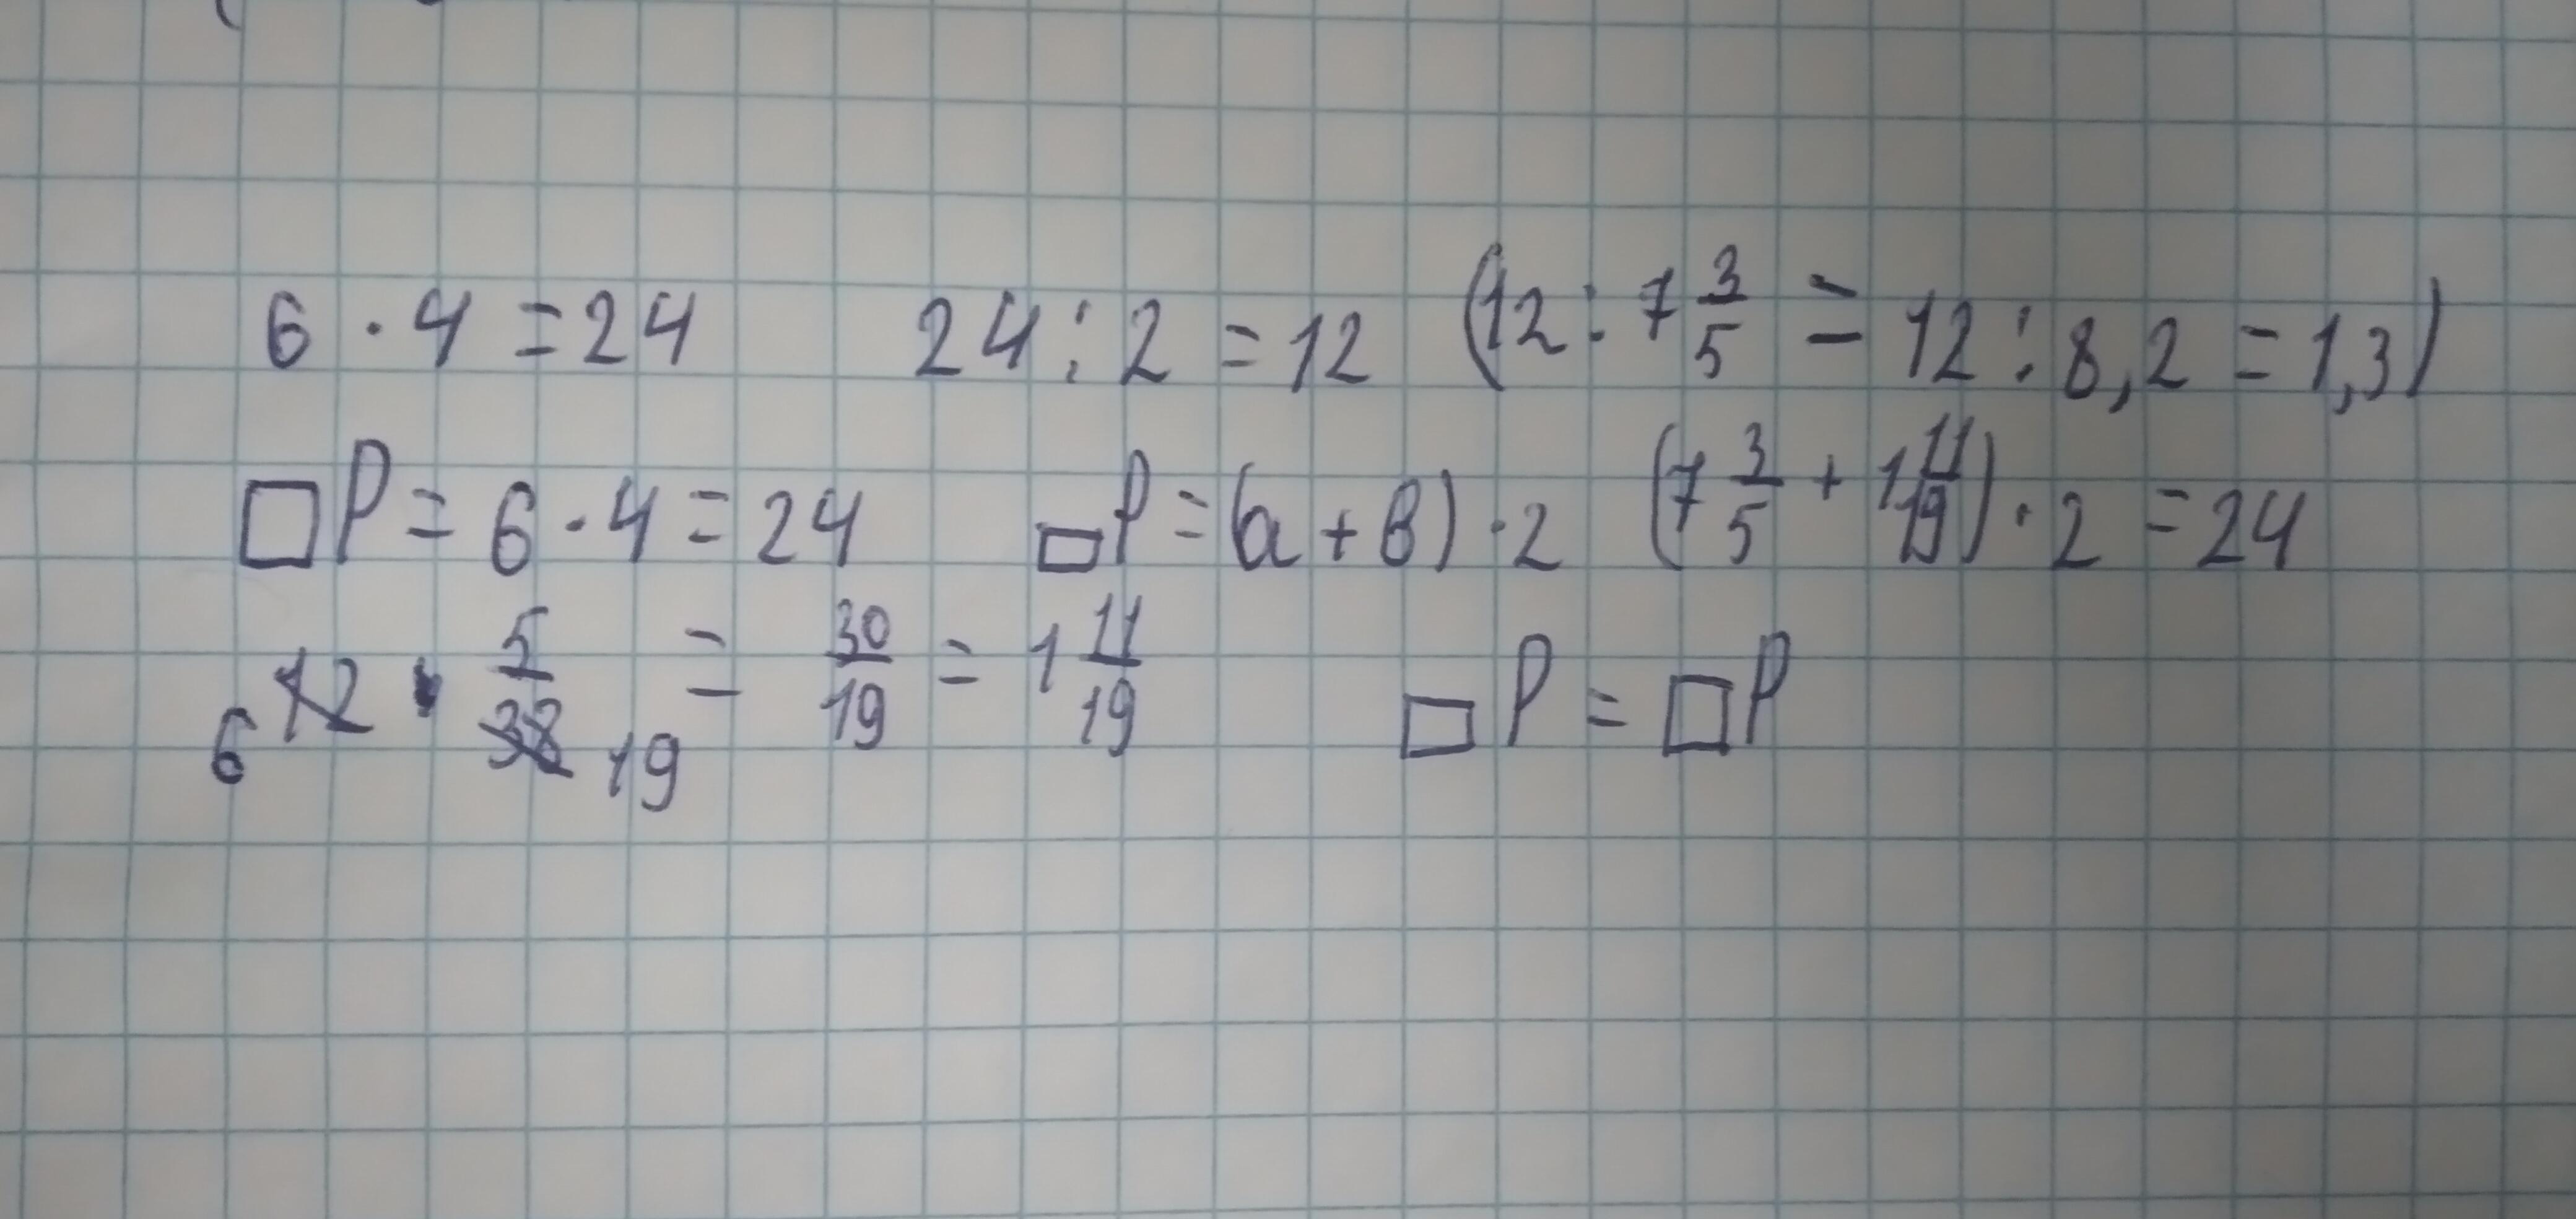 6 · 4 = 24 24 : 2 = 12 (12 : 7 3/5 = 12 : 8,2 = 1,3)
□P = 6 · 4 = 24 ▭P = (a + в) · 2 (7 3/5 + 1 11/19) · 2 = 24
6 12 · 5/38 19 = 30/19 = 1 11/19 ▭P = □P